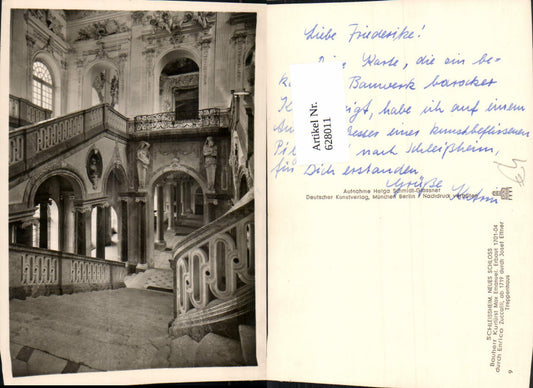 Liebe Friederike!
Karte, die ein be-
Bauwerk barocker
zeigt, habe ich auf einem
eines kunstbeflissenen
nach Schleißheim,
für Dich erstanden
Grüße
Artikel Nr.
628011
Aufnahme Helga Schmidt-Glassner
Deutscher Kunstverlag, München Berlin / Nachdruck verboten
SCHLEISSHEIM, NEUES SCHLOSS
Bauherr Kurfürst Max Emanuel. Erbaut 1701-04
durch Enrico Zuccalli, ab 1719 durch Josef Effner
Treppenhaus
9